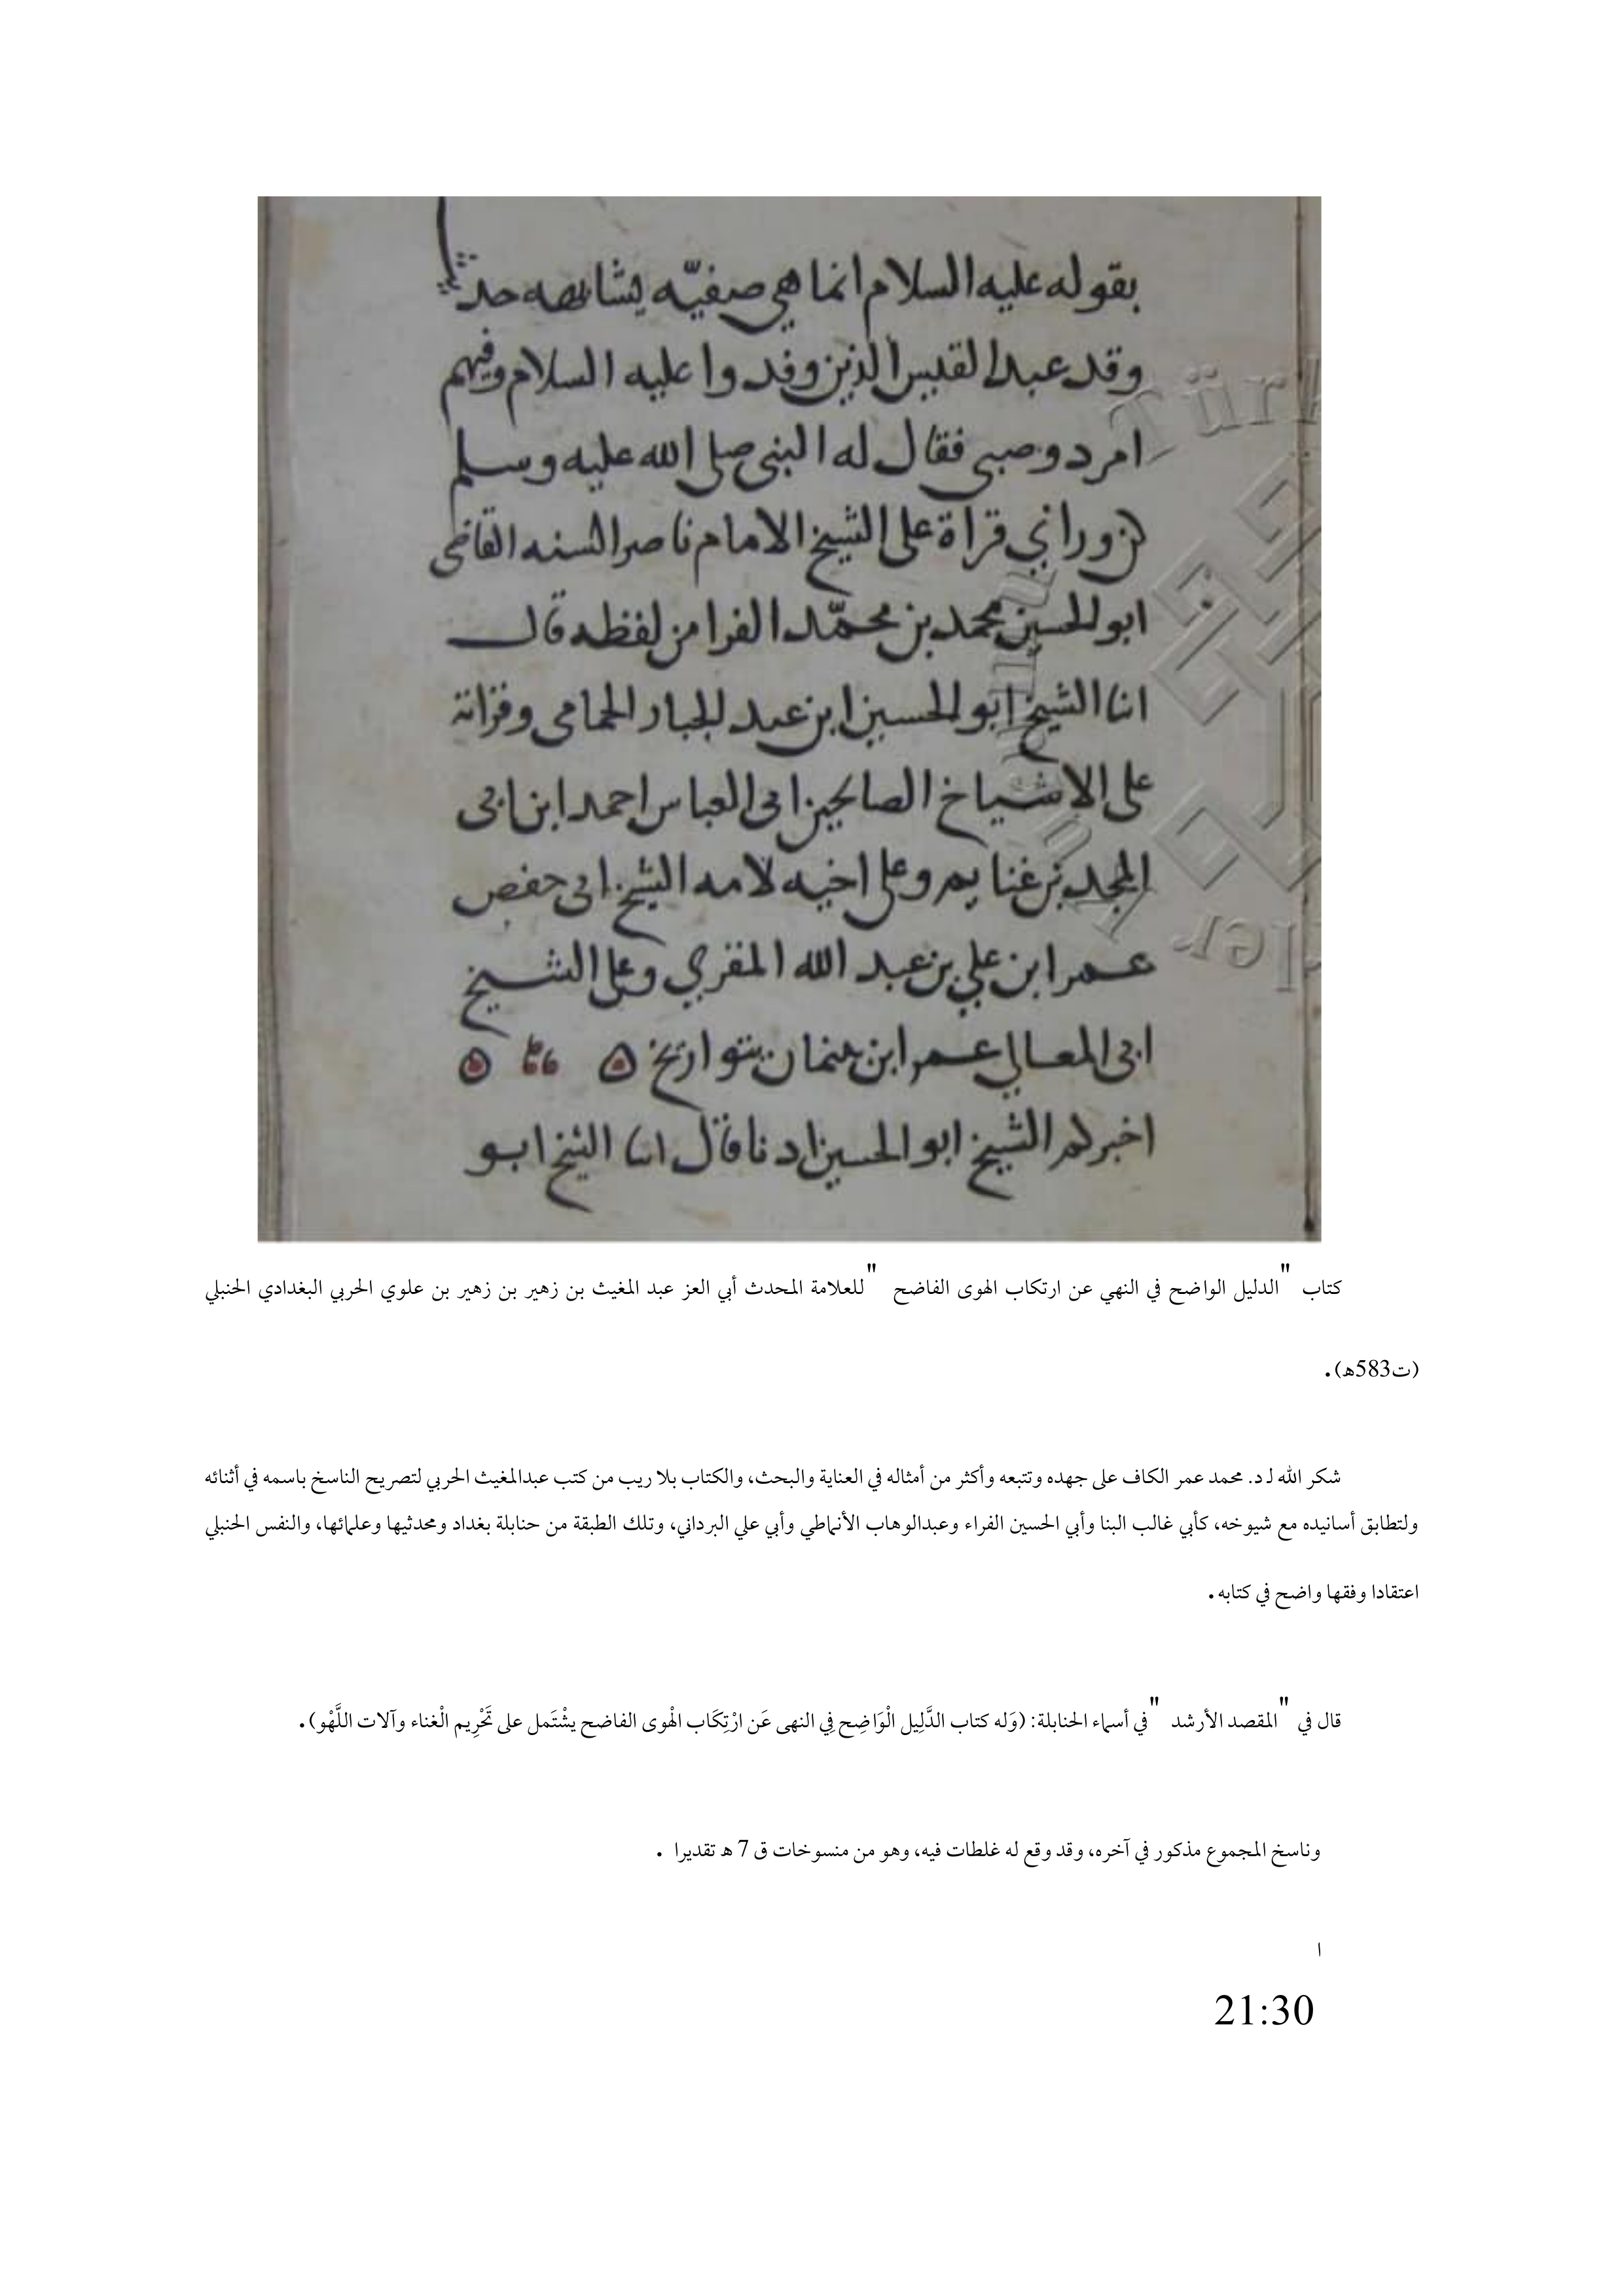 بقوله عليه السلام انما هي صفيّه
وقد عبد القيس الذين وفدوا عليه السلام وفيهم
امرد وصبى فقال له النبى صلى الله عليه وسلم
وراني قراة على الشيخ الامام ناصر السنه القاضى
ابو الحسين محمد بن محمّد الفرا من لفظه قال
انا الشيخ ابو الحسين ابن عبد الجبار الحمامى وقراة
على الاشياخ الصالحين ابى العباس احمد ابن ابى
المجد بن غنايم وعلى اخيه لامه الشيخ ابى حفص
عمر ابن علي بن عبد الله المقري وعلى الشيخ
ابى المعالي عمر ابن بتواريخ
اخبركم الشيخ ابو الحسين اد نا قال انا الشيخ ابو
كتاب "الدليل الواضح في النهي عن ارتكاب الهوى الفاضح "للعلامة المحدث أبي العز عبد المغيث بن زهير بن زهير بن علوي الحربي البغدادي الحنبلي
(ت583ه).
شكر الله لـ د. محمد عمر الكاف على جهده وتتبعه وأكثر من أمثاله في العناية والبحث، والكتاب بلا ريب من كتب عبدالمغيث الحربي لتصريح الناسخ باسمه في أثنائه
ولتطابق أسانيده مع شيوخه، كأبي غالب البنا وأبي الحسين الفراء وعبدالوهاب الأنماطي وأبي علي البرداني، وتلك الطبقة من حنابلة بغداد ومحدثيها وعلمائها، والنفس الحنبلي
اعتقادا وفقها واضح في كتابه.
قال في "المقصد الأرشد "في أسماء الحنابلة: (وَله كتاب الدَّلِيل الْوَاضِح فِي النهى عَن ارْتِكَاب الْهوى الفاضح يشْتَمل على تَحْرِيم الْغناء وآلات اللَّهْو).
وناسخ المجموع مذكور في آخره، وقد وقع له غلطات فيه، وهو من منسوخات ق 7 ه تقديرا .
ا
21:30